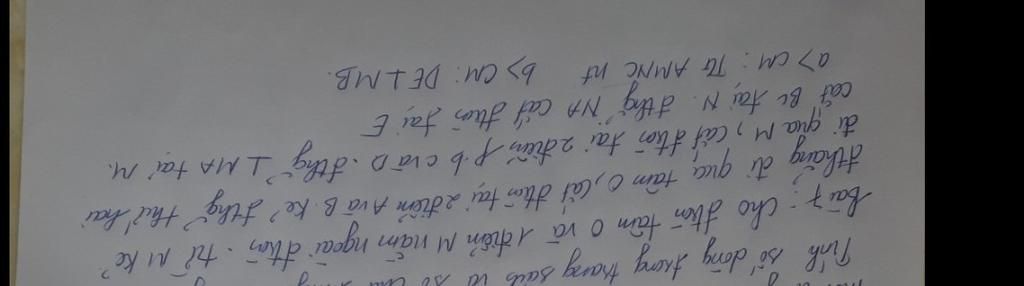 Tính số dòng trong trang sách và số
Bài 7: Cho đtròn tâm O và 1 điểm M nằm ngoài đtròn. từ M kẻ
đthẳng đi qua tâm O, cắt đtròn tại 2 điểm A và B. Kẻ đthg thứ hai
đi qua M, cắt đtròn tại 2 điểm p.b C và D. đthg ⊥ MA tại M.
cắt BC tại N. đthg NA cắt đtròn tại E
a> CM: Tứ AMNC nt b> CM: DE ⊥ MB.